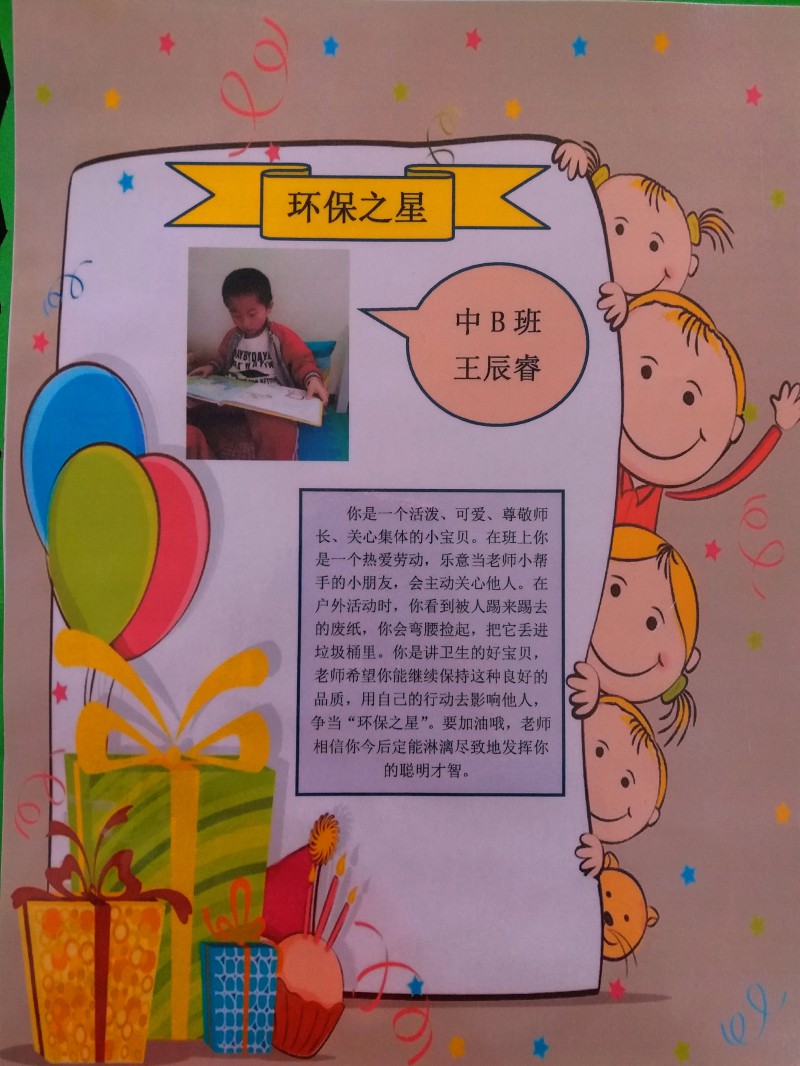 环保之星
中 B 班
王辰睿
你是一个活泼、可爱、尊敬师
长、关心集体的小宝贝。在班上你
是一个热爱劳动，乐意当老师小帮
手的小朋友，会主动关心他人。在
户外活动时，你看到被人踢来踢去
的废纸，你会弯腰捡起，把它丢进
垃圾桶里。你是讲卫生的好宝贝，
老师希望你能继续保持这种良好的
品质，用自己的行动去影响他人，
争当“环保之星”。要加油哦，老师
相信你今后定能淋漓尽致地发挥你
的聪明才智。